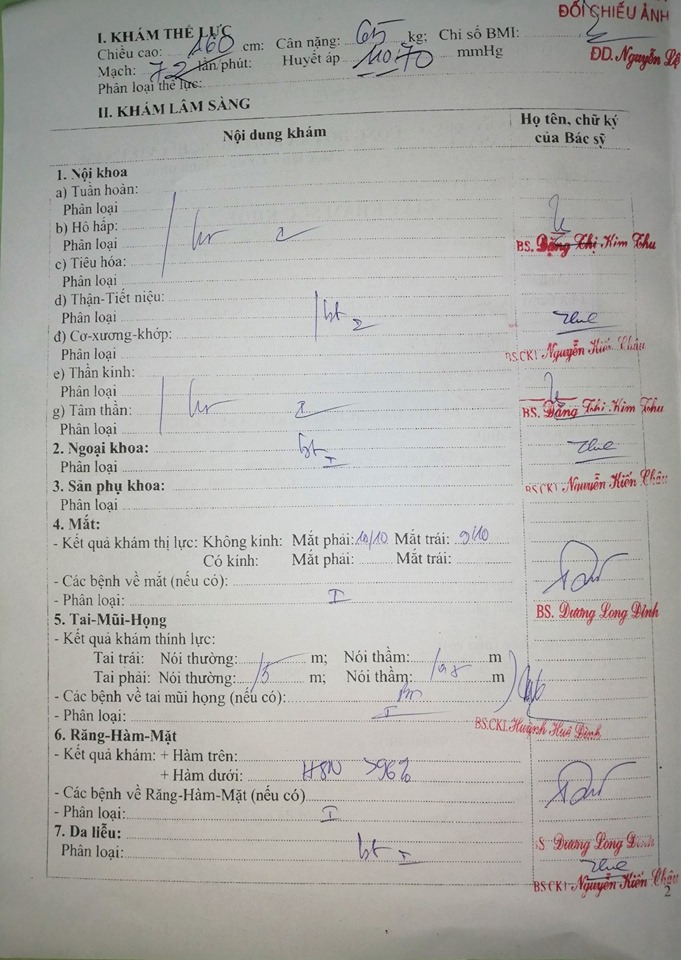 ĐỐI CHIẾU ẢNH
I. KHÁM THỂ LỰC
Chiều cao: 160 cm; Cân nặng: 65 kg; Chỉ số BMI:
Mạch: 72 lần/phút; Huyết áp 110/70 mmHg
ĐD. Nguyễn Lệ
Phân loại thể lực:
II. KHÁM LÂM SÀNG
Nội dung khám
Họ tên, chữ ký của Bác sỹ
1. Nội khoa
a) Tuần hoàn:
Phân loại
b) Hô hấp:
Phân loại
BS. Đặng Thị Kim Thu
c) Tiêu hóa:
Phân loại
d) Thận-Tiết niệu:
Phân loại bt
đ) Cơ-xương-khớp:
Phân loại
BS.CKI Nguyễn Kiến Châu
e) Thần kinh:
Phân loại
g) Tâm thần:
BS. Đặng Thị Kim Thu
Phân loại
2. Ngoại khoa: bt I
Phân loại
3. Sản phụ khoa:
BS.CKI Nguyễn Kiến Châu
Phân loại
4. Mắt:
- Kết quả khám thị lực: Không kính: Mắt phải: 10/10 Mắt trái: 9/10
Có kính: Mắt phải: Mắt trái:
- Các bệnh về mắt (nếu có):
- Phân loại: I
BS. Dương Long Đỉnh
5. Tai-Mũi-Họng
- Kết quả khám thính lực:
Tai trái: Nói thường: m; Nói thầm: m
Tai phải: Nói thường: 5 m; Nói thầm: 0,5 m
- Các bệnh về tai mũi họng (nếu có):
- Phân loại: I
BS.CKI Huỳnh Huê Đình
6. Răng-Hàm-Mặt
- Kết quả khám: + Hàm trên:
+ Hàm dưới: HSN >96%
- Các bệnh về Răng-Hàm-Mặt (nếu có)
- Phân loại: I
7. Da liễu:
S. Dương Long Đỉnh
Phân loại: bt I
BS.CKI Nguyễn Kiến Châu
2